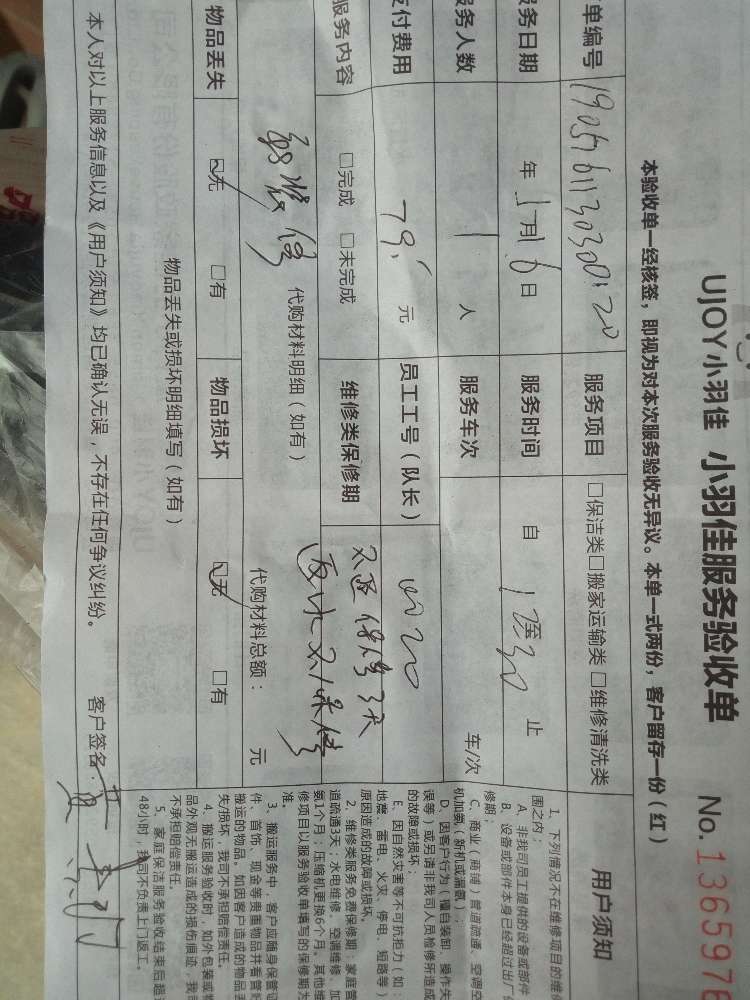 UJOY小羽佳 小羽佳服务验收单 No. 1365976
本验收单一经核签，即视为对本次服务验收无异议。本单一式两份，客户留存一份（红）
单编号 服务项目 □保洁类□搬家运输类 □维修清洗类
务日期 年 月 日 服务时间 自 1 至 止
务人数 1 人 服务车次 车/次
支付费用 79. 元 员工工号（队长）
服务内容 □完成 □未完成 维修类保修期 保修3天
代购材料明细（如有） 代购材料总额： 元
物品丢失 ☑无 □有 物品损坏 ☑无 □有
物品丢失或损坏明细填写（如有）
本人对以上服务信息以及《用户须知》均已确认无误，不存在任何争议纠纷。 客户签名：
用户须知
1、下列情况不在维修项目的维修
围之内：
A、非我司员工提供的设备或部件
B、设备或部件本身已经超过出厂
修期；
C、商业（商铺）管道疏通、空调空
机加氨（新机或漏氨）；
D、因客户行为（擅自装卸、操作失
误等）或另请非我司人员检修所造成
的故障或损坏；
E、因自然灾害等不可抗拒力（如：
地震、雷电、火灾、停电、短路等）
原因造成的故障或损坏。
2、维修类服务免费保修期：家庭管
道疏通3天；水电维修、空调维修、加
氨1个月；压缩机更换6个月。其他维
修项目以服务验收单填写的保修期为
准。
3、搬运服务中，客户应随身保管证
件、首饰、现金等贵重物品并看管好
搬运的物品，如因客户造成的物品丢
失/损坏，我司不承担赔偿责任。
4、搬运服务验收时，如外包装或物
品外观无搬运造成的损伤痕迹，我司
不承担赔偿责任。
5、家庭保洁服务验收结束后超过
48小时，我司不负责上门返工。